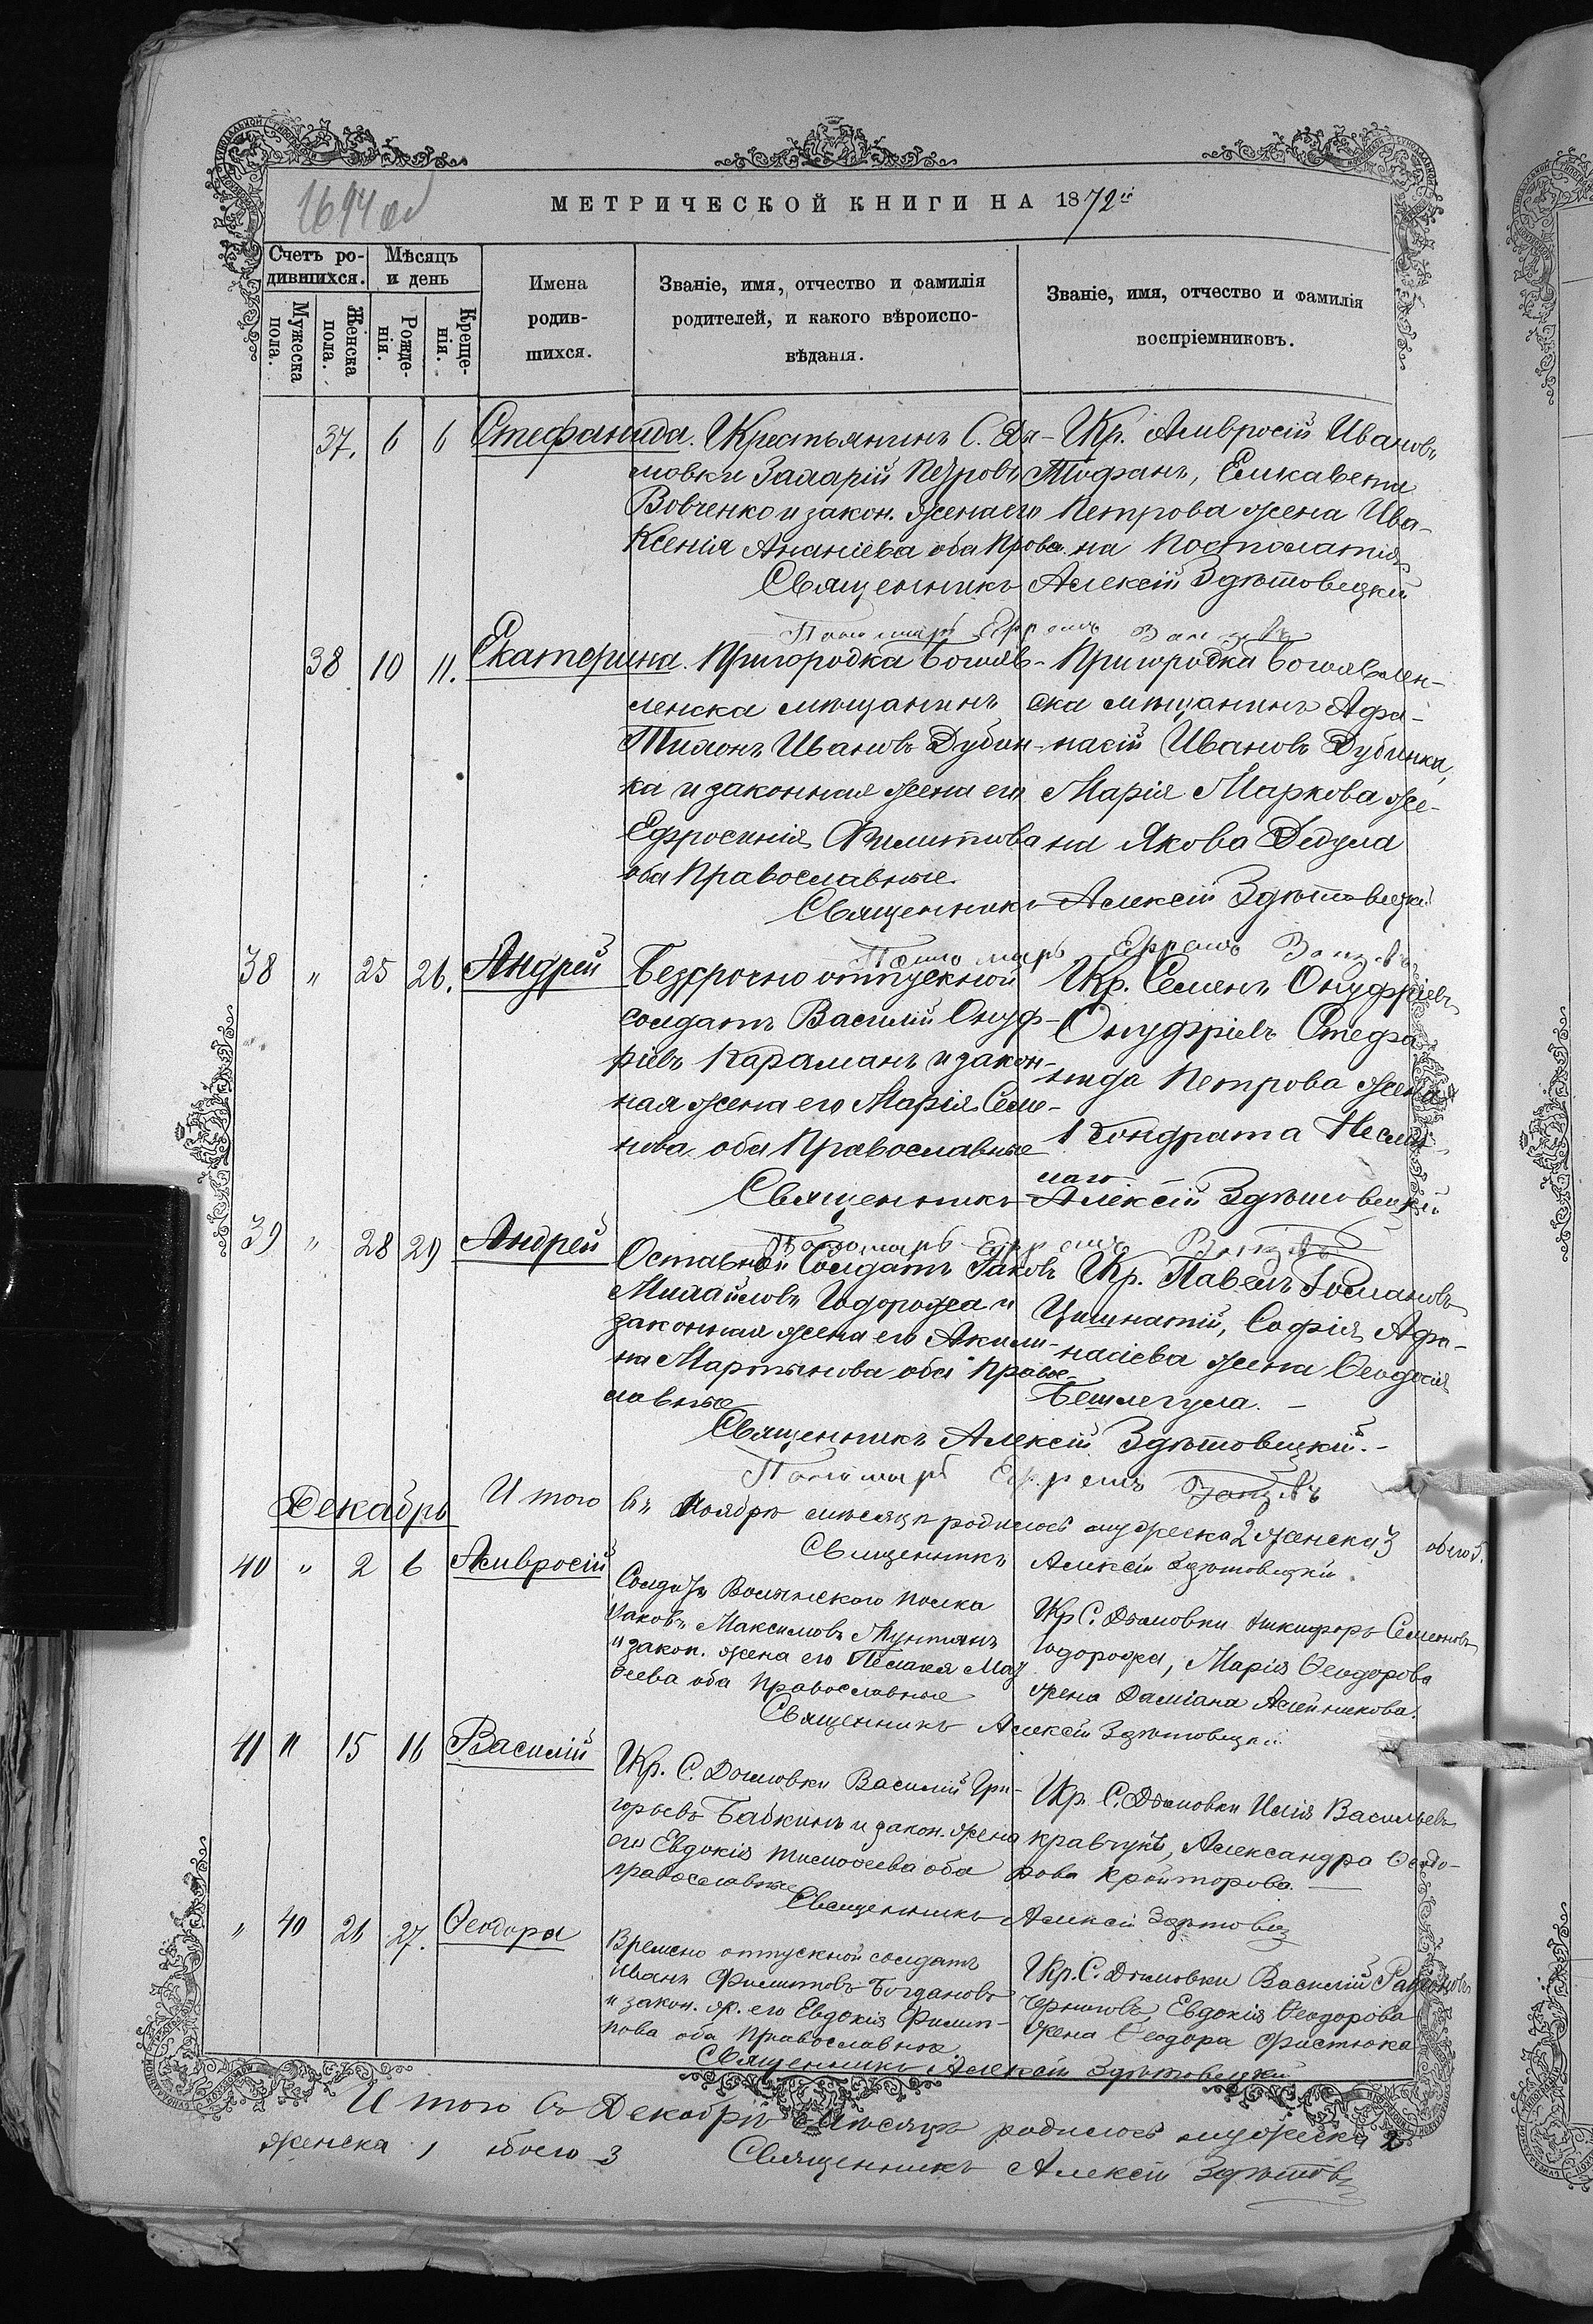 1694
МЕТРИЧЕСКОЙ КНИГИ НА 1872й
Счетъ ро-
дившихся.
Мѣсяцъ
и день
Мужеска
пола.
Женска
пола.
Рожде-
нія.
Креще-
нія.
Имена
родив-
шихся.
Званіе, имя, отчество и фамилія
родителей, и какого вѣроиспо-
вѣданія.
Званіе, имя, отчество и фамилія
воспріемниковъ.
37. 6 6 Стефанида.
Крестьянинъ С. Дя-
мовки Захарій Петровъ
Вовченко и закон. жена его
Ксенія Ананіева оба Прав.
Кр. Амвросій Ивановъ
Тофанъ, Елисавета
Петрова жена Ива-
на Постолатія
Священникъ Алексій Здѣтовецкій
Пономарь Ефремъ
38 10 11. Екатерина.
Пригородка Богояв-
ленска мѣщанинъ
Тихонъ Ивановъ Дубин-
ка и законная жена его
Ефросинія Филиппова
оба Православные
Пригородка Богоявлен-
ска мѣщанинъ Афа-
насій Ивановъ Дубинка,
Марія Маркова же-
на Якова Дедула
Священникъ Алексій Здѣтовецкій
Пономарь Ефремъ
38 " 25 26. Андрей
Безсрочно отпускной
солдатъ Василій Онуф-
ріевъ Караманъ и закон-
ная жена его Марія Семе-
нова оба Православные
Кр. Семенъ Онуфріевъ
Онуфріевъ Стефа
нида Петрова жена
Кондрата
Священникъ Алексій Здѣтовецкій
Пономарь Ефремъ
39 " 28 29 Андрей
Оставной Солдатъ Іаковъ
Михайловъ Годорожа и
законная жена его Акили-
на Мартынова оба Право-
лавные
Кр. Павелъ Романовъ
Софія Афа-
насіева жена Ѳеодосія
Бешлегула.
Священникъ Алексій Здѣтовецкій.
Пономарь Ефремъ
И того въ Ноябрѣ мѣсяцѣ родилось мужеска 2 женска 3 обего 5.
Священникъ Алексій Здѣтовецкій
Декабрь
40 " 2 6 Амвросій
Солдатъ Волынскаго полка
Іаковъ Максимовъ Мунтянъ
и закон. жена его Пелагея
оба православные
Кр С. Дымовки Никифоръ Семеновъ
Годорожа, Марія Ѳеодорова
жена Даміана Алейникова.
Священникъ Алексій Здѣтовецкій
41 " 15 16 Василій
Кр. С. Дымовки Василій Гри-
горьевъ Бабкинъ и закон. жена
его Евдокія Тимоѳеева оба
православные
Кр. С. Дымовки Илія Васильевъ
Кравчукъ, Александра Ѳеодо-
рова Кройторова.
Священникъ Алексій Здѣтовец
" 40 26 27. Ѳеодора
Времено отпускной солдатъ
Иванъ Филиповъ Богдановъ
и закон. ж. его Евдокія Филип-
пова оба православные
Кр. С. Дымовки Василій
Черниговъ, Евдокія Ѳеодорова
жена Ѳеодора Фистюка
Священникъ Алексій Здѣтовецкій
И того въ Декабрѣ мѣсяцѣ родилось мужеска 2
женска 1 обоего 3 Священникъ Алексій Здѣтов